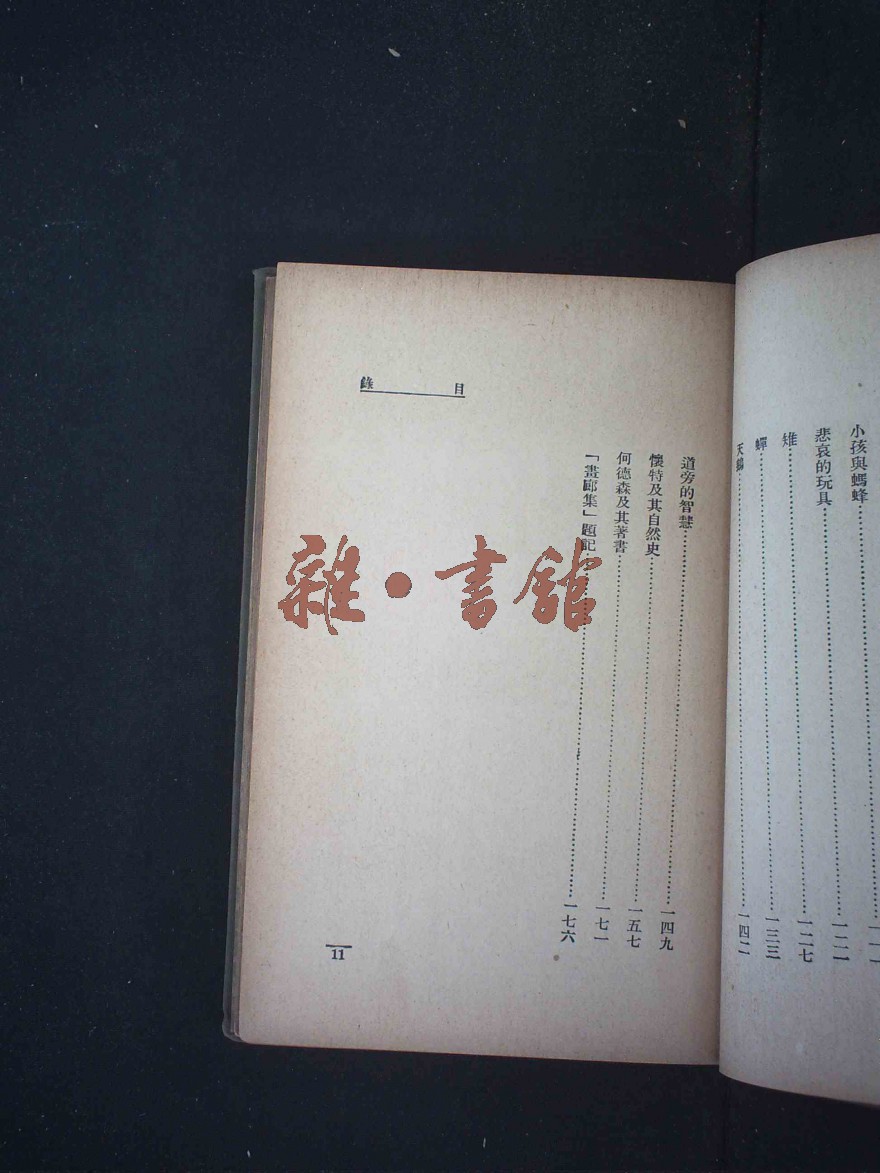 小孩與螞蜂
悲哀的玩具 一二一
雉 一二七
蟬 一三三
天鵝 一四二
目錄
道旁的智慧 一四九
懷特及其自然史 一五七
何德森及其著書 一七一
「畫廊集」題記 一七六
11
雜·書館